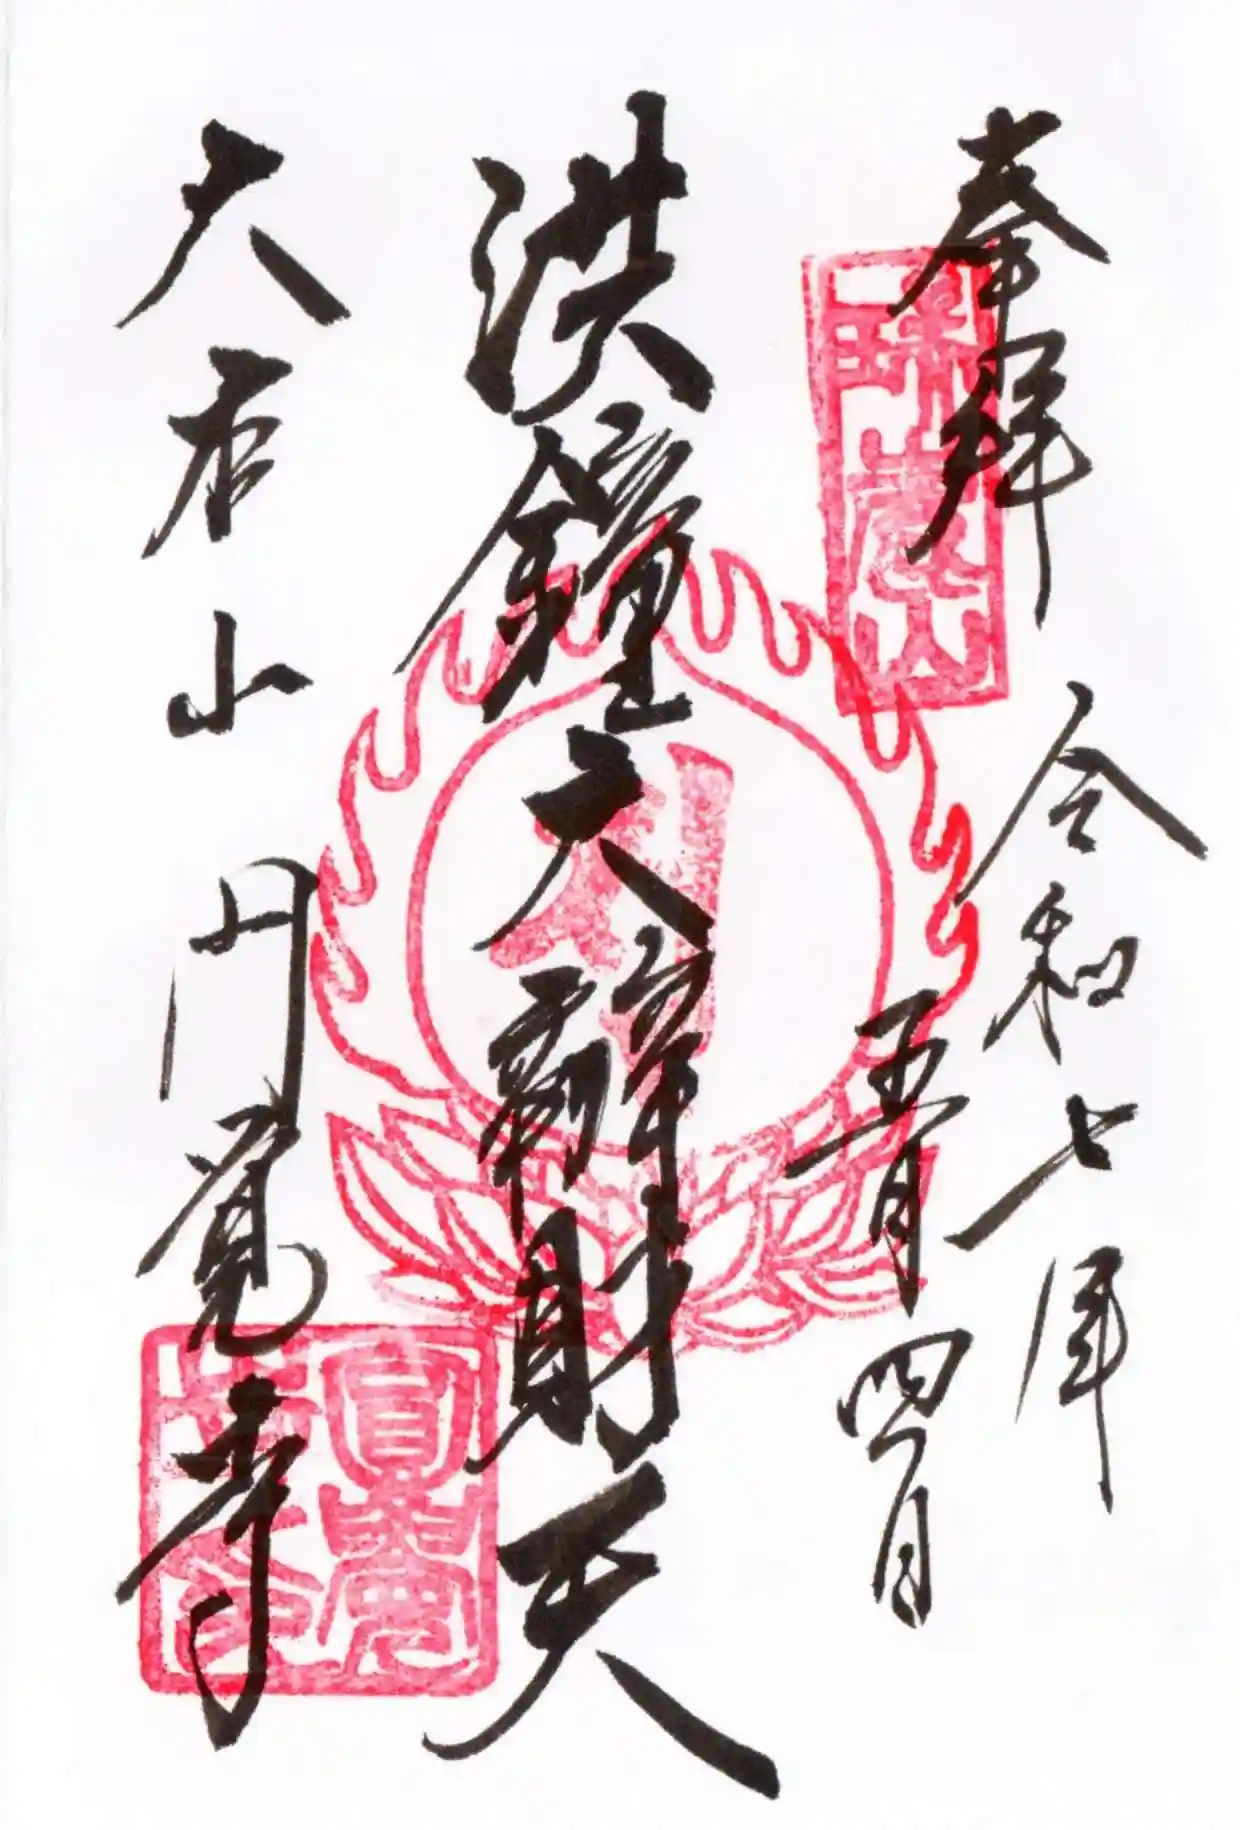 奉拝
令和七年
五月四日
瑞鹿山
洪鐘大辯財天
大本山円覚寺